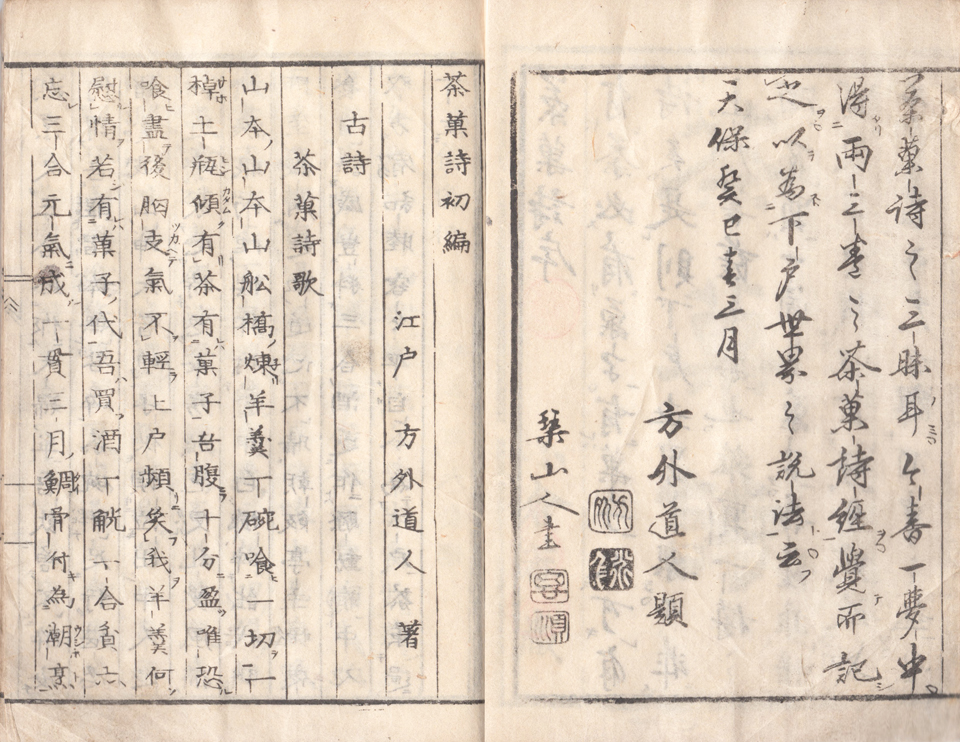 茶菓詩之三昧耳今春一夢中
得両三巻之茶菓詩経覺而記
之以為下戸世界之説法云
天保癸巳春三月
方外道人題
琴山人書
茶菓詩初編
江戸方外道人著
古詩
茶菓詩歌
山本山本山舩橋煉羊羹一碗喰一切一
棹土瓶傾有茶有菓子吾腹十分盈唯恐
喰盡後胸支氣不輕上戸頻笑我羊羹何
慰情若有菓子代吾買酒一觥一合貧六
忘三合元氣成一貫三月鯛骨付為潮烹